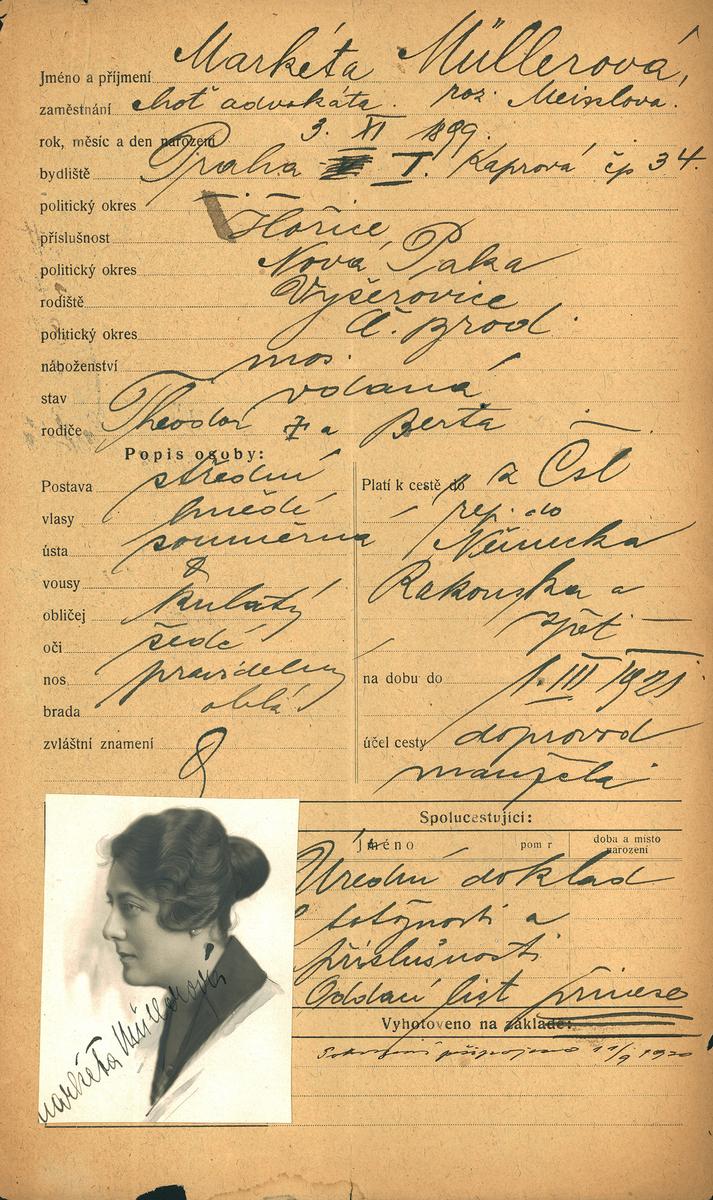 Jméno a příjmení Markéta Müllerová,
zaměstnání choť advokáta. roz. Meisslova.
rok, měsíc a den narození 3. XI 1899.
bydliště Praha I. Kaprová čp 34.
politický okres
příslušnost Hořice,
politický okres Nová Paka
rodiště Vyšerovice
politický okres Č. Brod.
náboženství mos.
stav vdaná
rodiče Theodor a Berta
Popis osoby:
Postava střední
vlasy hnědé
ústa souměrna
vousy
obličej kulatý
oči šedé
nos pravidelny
brada oblá
zvláštní znamení
Platí k cestě do z Čsl
rep. do
Německa
Rakouska a
zpět
na dobu do 1. III 1921
účel cesty doprovod
manžela
Spolucestující:
Jméno pom r doba a místo narození
Úřední doklad
totožnosti a
příslušnosti
Oddací list přinese
Vyhotoveno na základe:
připojeno 11/9 1920
Markéta Müllerová